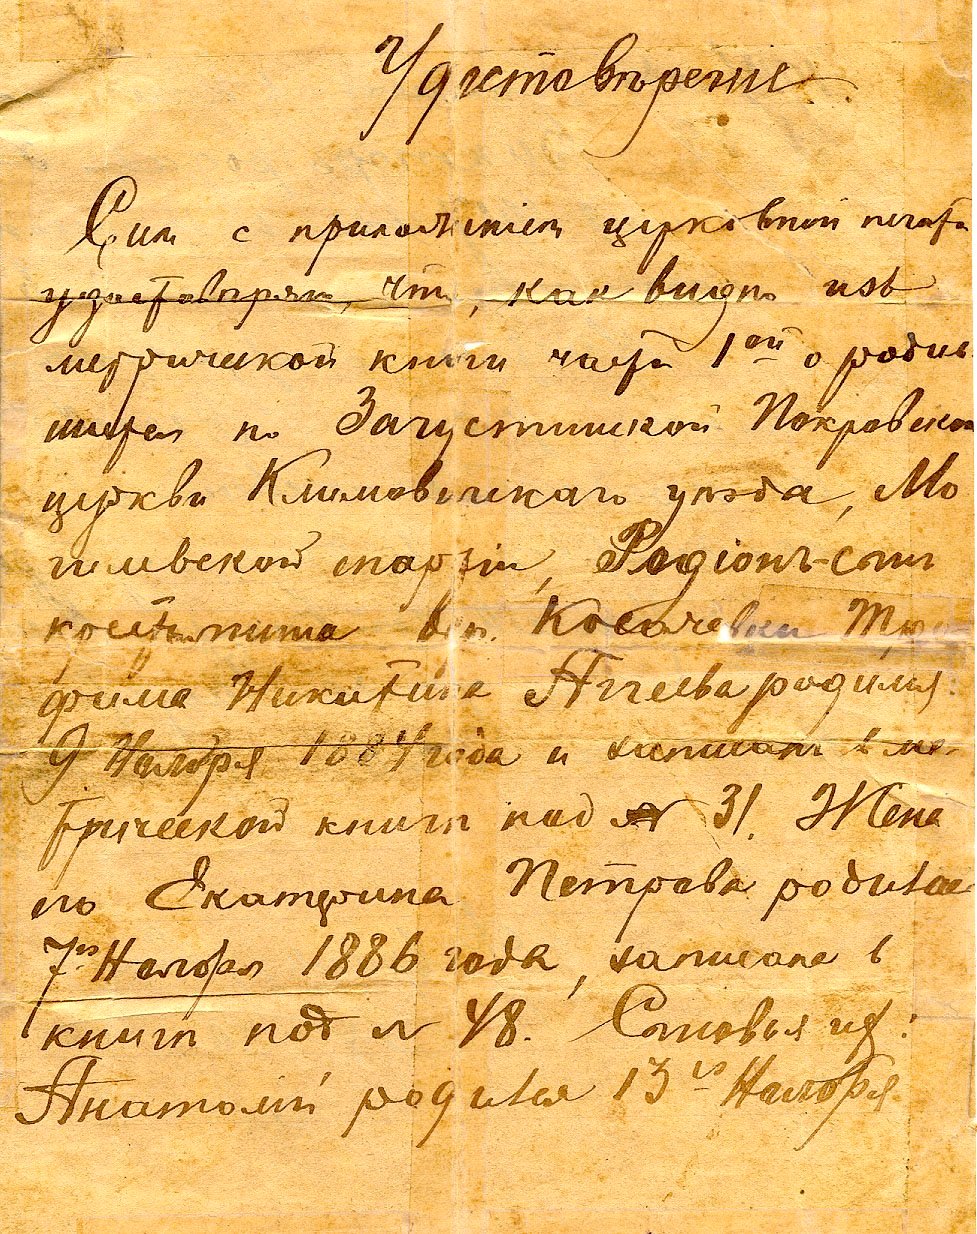 Удостоверение
Сим с приложением церковной печати
удостоверяю, что, как видно изъ
метрической книги части 1ой о родив-
шихся по Загустинской Покровской
церкви Климовичскаго уезда, Мо
гилевской епархіи, Родіонъ-сынъ
крестьянина дер. Косачевки Тро
фима Никитина Аггеева родился
9 Ноября 1884 года и записан в ме-
трической книге под № 31. Жена
его Екатерина Петрова родилась
7го Ноября 1886 года, записана в
книге под № 48. Сыновья их:
Анатолій родился 13го Ноября